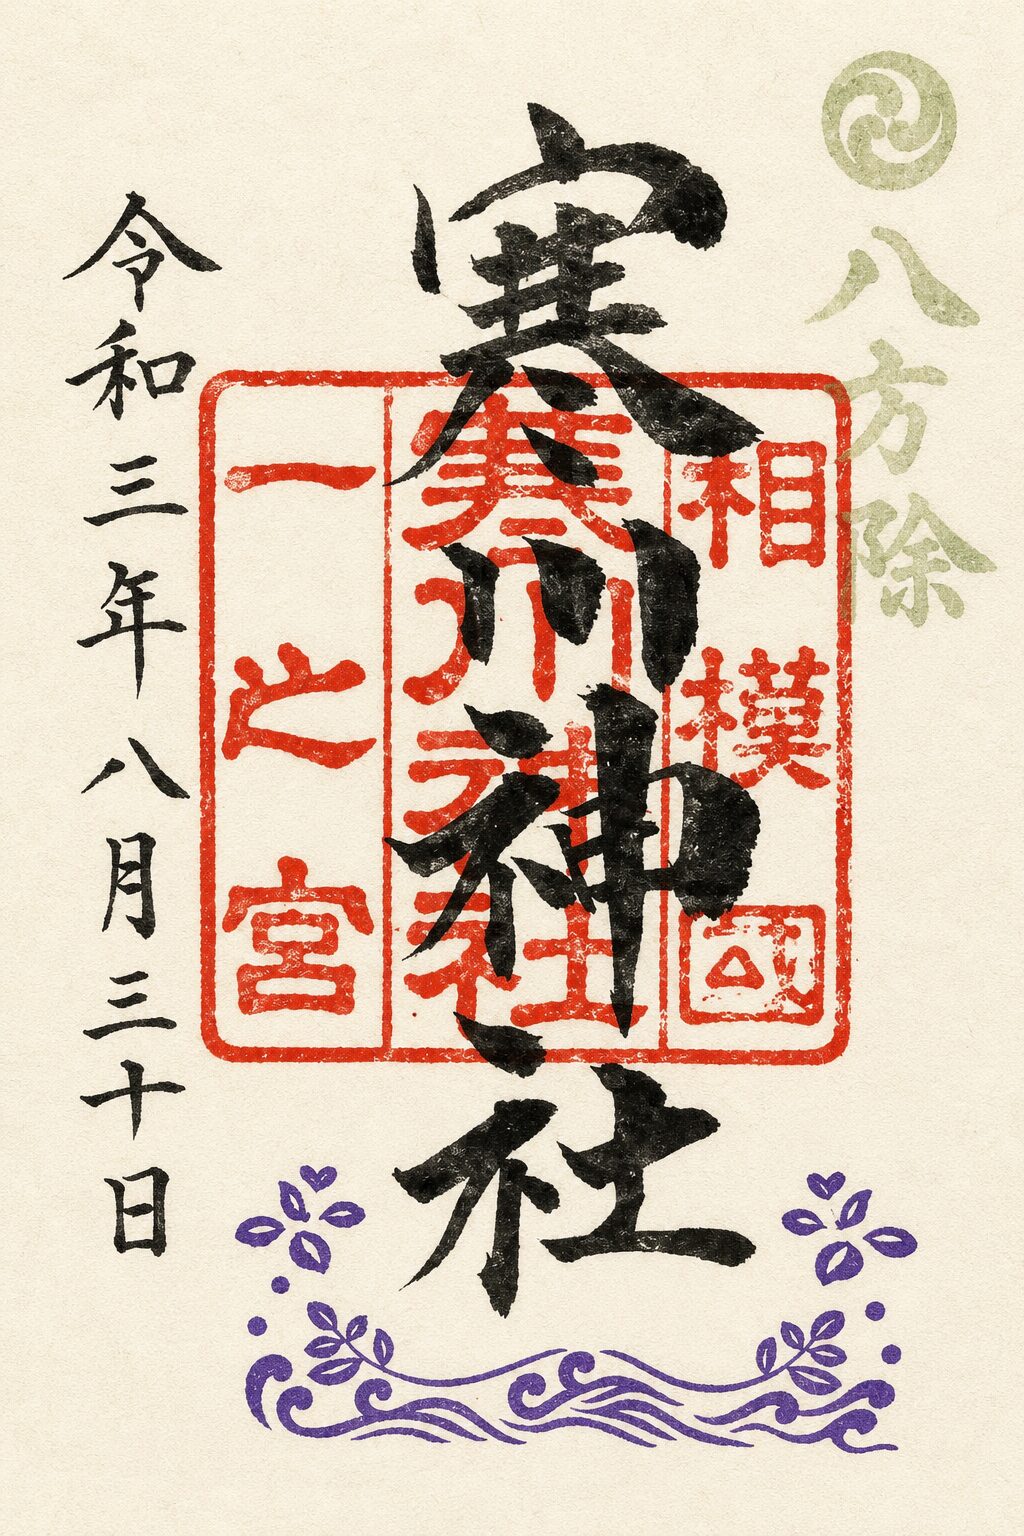 八方除
寒川神社
相模國
寒川神社
一之宮
令和三年八月三十日